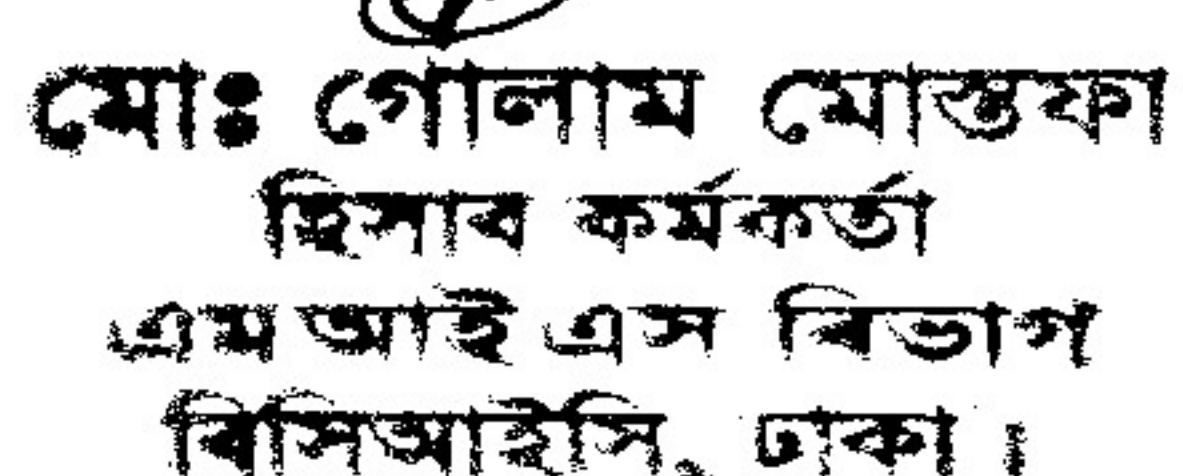 মোঃ গোলাম মোস্তফা
হিসাব কর্মকর্তা
এমআইএস বিভাগ
বিসিআইসি, ঢাকা।